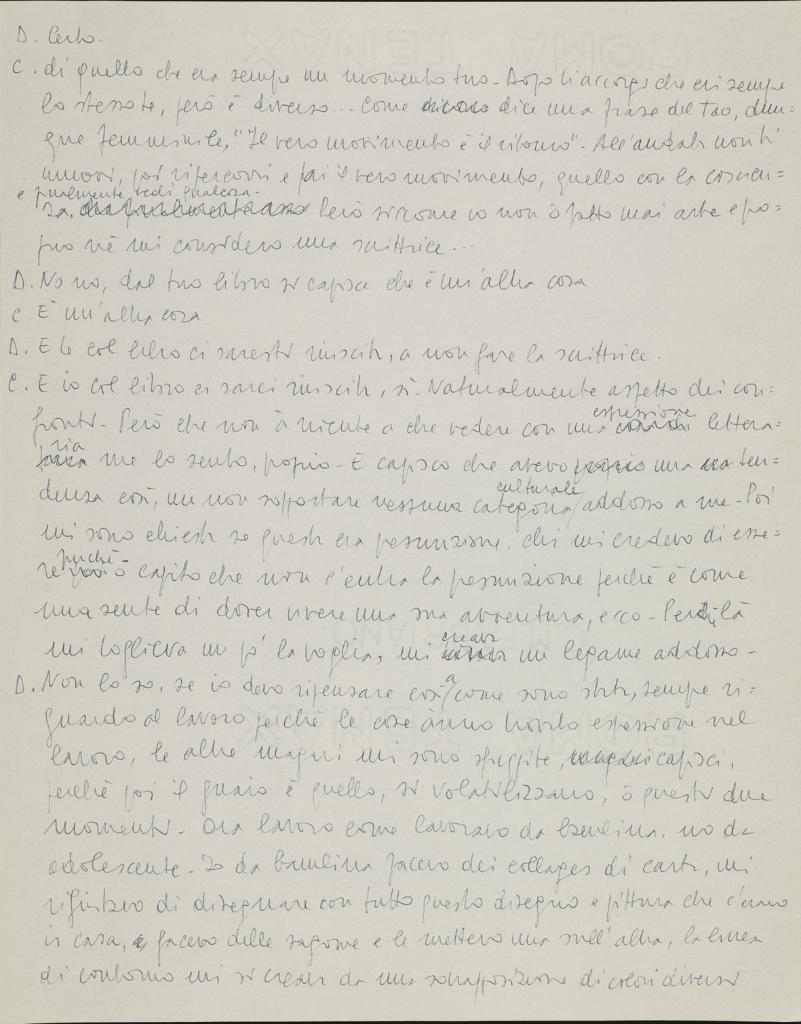 D. Certo.
C. di quello che era sempre un momento tuo - Dopo ti accorgi che eri sempre
lo stesso te, però è diverso... Come dice una frase del Tao, dun=
que femminile, "Il vero movimento è il ritorno" - All'andata non ti
muovi, poi ripercorri e fai il vero movimento, quello con la coscien=
e finalmente vedi qualcosa -
za. Però siccome io non ò fatto mai arte e po=
i né mi considero una scrittrice...
D. No no, dal tuo libro si capisce che è un'altra cosa
C. È un'altra cosa
D. E te col libro ci saresti riuscita, a non fare la scrittrice.
C. E io col libro ci sarei riuscita, sì - Naturalmente aspetto dei con=
fronti - Però che non à niente a che vedere con una
espressione
lettera=
ria
me lo sento, proprio - E capisco che avevo una ten=
denza così, un non sopportare nessuna categoria
culturale
addosso a me - Poi
mi sono chiesta se questa era presunzione, chi mi credevo di esse=
re
finché -
ò capito che non c'entra la presunzione perché è come
una sente di dover vivere una sua avventura, ecco - Però là
mi toglieva un po' la voglia, mi
creava
un legame addosso -
D. Non lo so, se io devo ripensare così
a
come sono stata, sempre ri=
guardo al lavoro perché le cose ànno trovato espressione nel
lavoro, le altre magari mi sono sfuggite, capisci,
perché poi il guaio è quello, si volatilizzano, ò questi due
momenti - Ora lavoro come lavoravo da bambina, no da
adolescente - Io da bambina facevo dei collages di carta, mi
rifiutavo di disegnare con tutto questo disegno e pittura che c'erano
in casa, e facevo delle sagome e le mettevo una sull'altra, la linea
di contorno mi si creava da una sovrapposizione di colori diversi